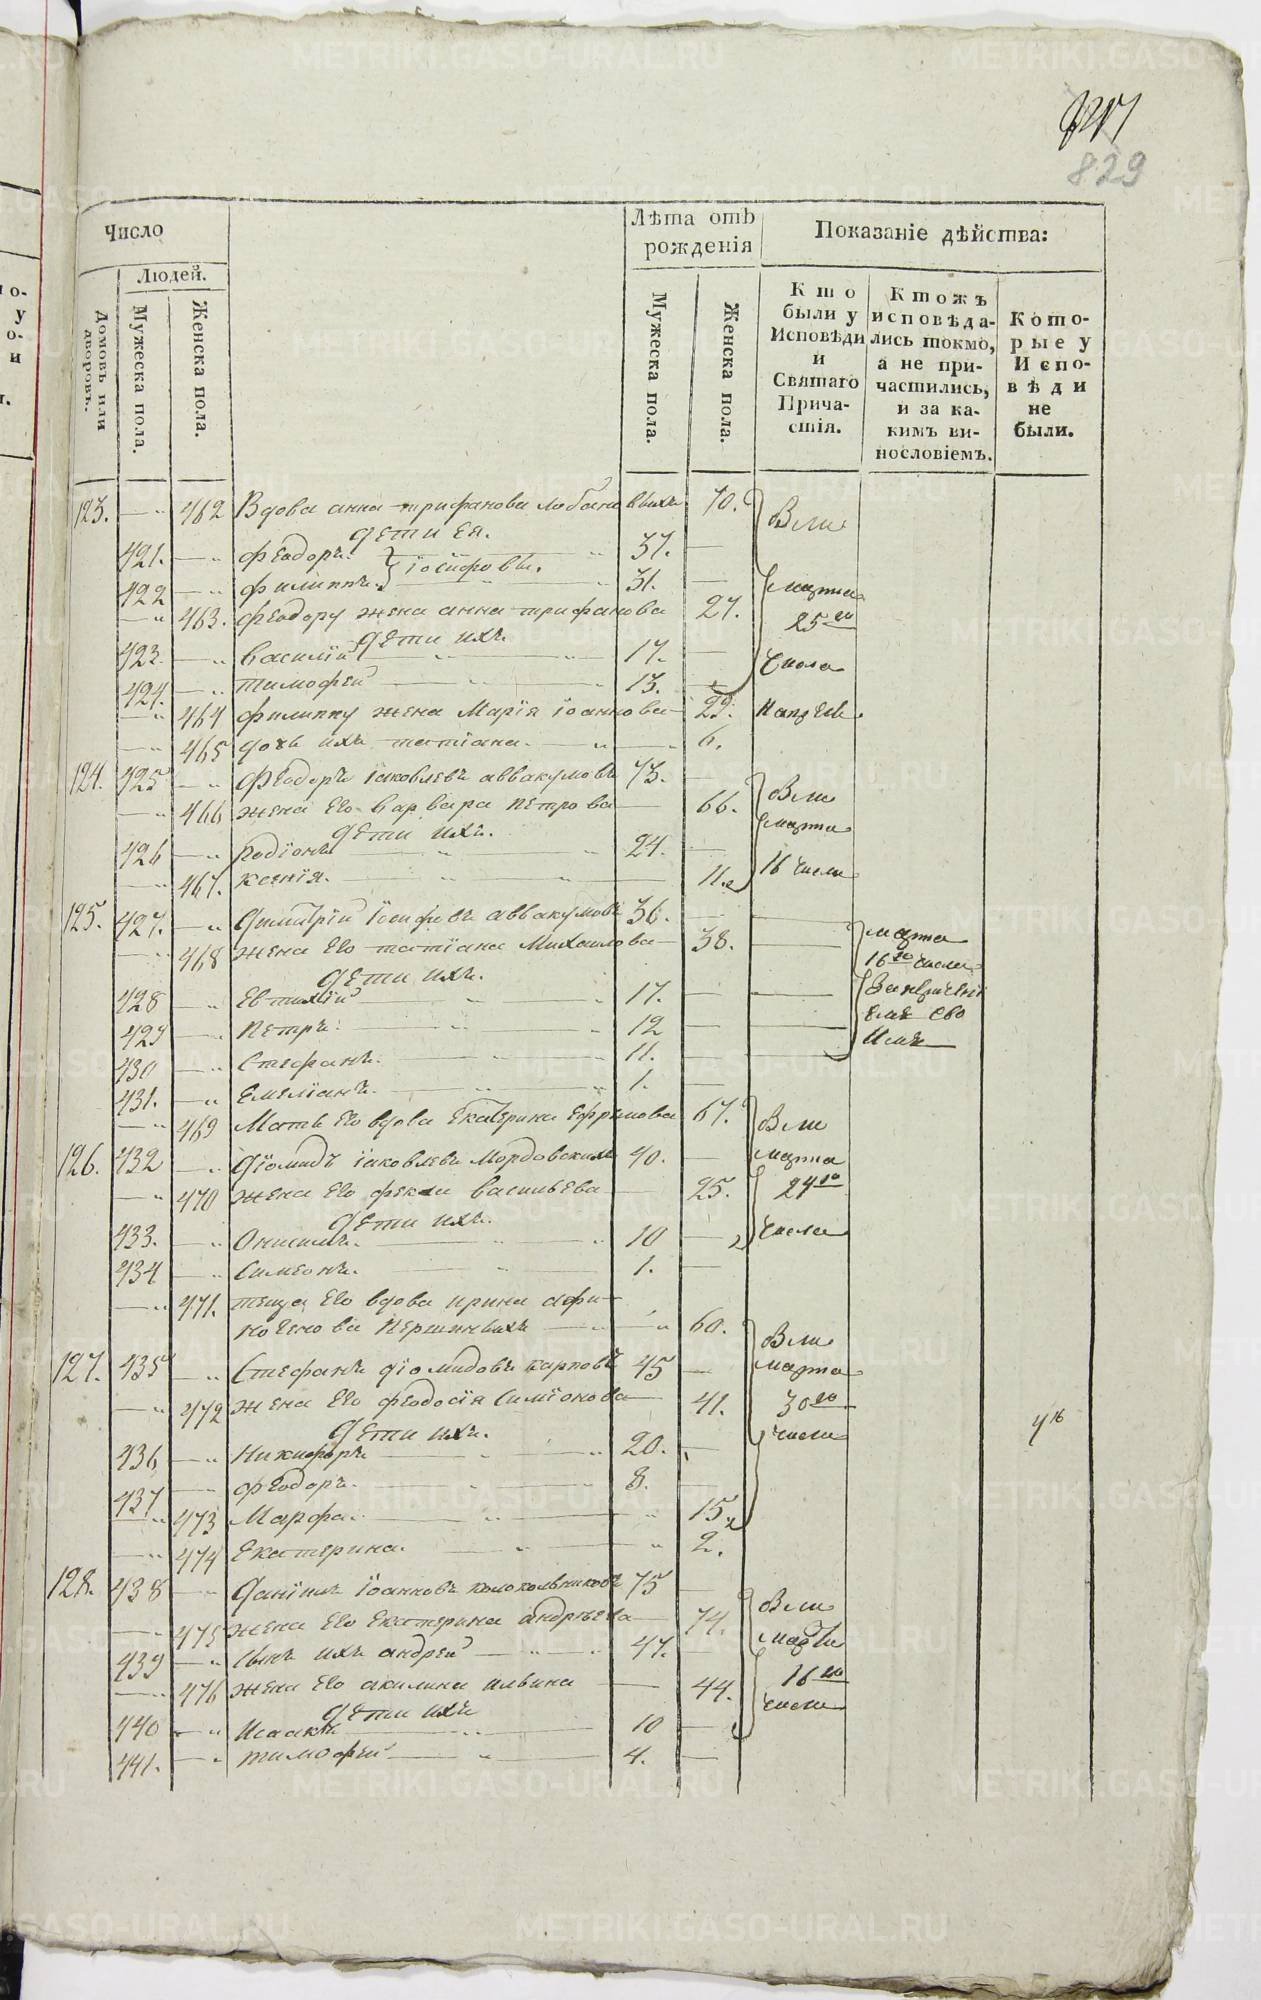 829
Число
Людей.
Домовъ или дворовъ.
Мужеска пола.
Женска пола.
Лѣта отъ рожденія
Мужеска пола.
Женска пола.
Показаніе дѣйства:
Кто были у Исповѣди и Святаго Причастія.
Ктожъ исповѣдались токмо, а не причастились, и за какимъ винословіемъ.
Которые у Исповѣди не были.
123. 462 Вдова анна трифанова 70.
дети ея.
421. феодоръ. 37.
іосифовы.
422 филиппъ. 31.
463. феодору жена анна трифанова 27.
дети ихъ.
423. василій 17.
424. тимофей 13.
464 филиппу жена Марія іоаннова 22.
465 дочь ихъ татіана. 6.
Вси
марта
25го
числа
124. 425 Феодоръ іаковлевъ аввакумовъ 73.
466 жена Его варвара петрова 66.
дети ихъ.
426 Родіонъ 24.
467. ксенія. 11.
Вси
марта
16 числа
125. 427. Димитрій іосифовъ аввакумовъ 36.
468 жена Его татіана Михаилова 38.
дети ихъ.
428 Евтихій 17.
429 Петръ. 12
430 Стефанъ. 11.
431. Емеліанъ. 1.
марта
16го числа
469 Мать Его вдова Екатерина Ефремова 67.
126. 432 Діомидъ іаковлевъ Мордовскихъ 40.
470 жена Его фекла васильева 25.
дети ихъ.
433. Онисимъ. 10
434 Симеонъ. 1.
471. теща Его вдова ирина
60.
Вси
марта
24го
числа
127. 435 Стефанъ діомидовъ карповъ 45
472 жена Его феодосія Симіонова 41.
дети ихъ.
436 Никифоръ 20.
437 феодоръ. 8.
473 Марфа. 15.
474 Екатерина. 2.
Вси
марта
30го
числа
128. 438 Даніилъ іоанновъ колокольниковъ 75
475 жена Его Екатерина андреева 74.
439 сынъ ихъ андрей 47.
476 жена Его акилина ильина 44.
дети ихъ
440 Исаакъ 10
441. тимофей 4.
Вси
марта
16го
числа
METRIKI.GASO-URAL.RU